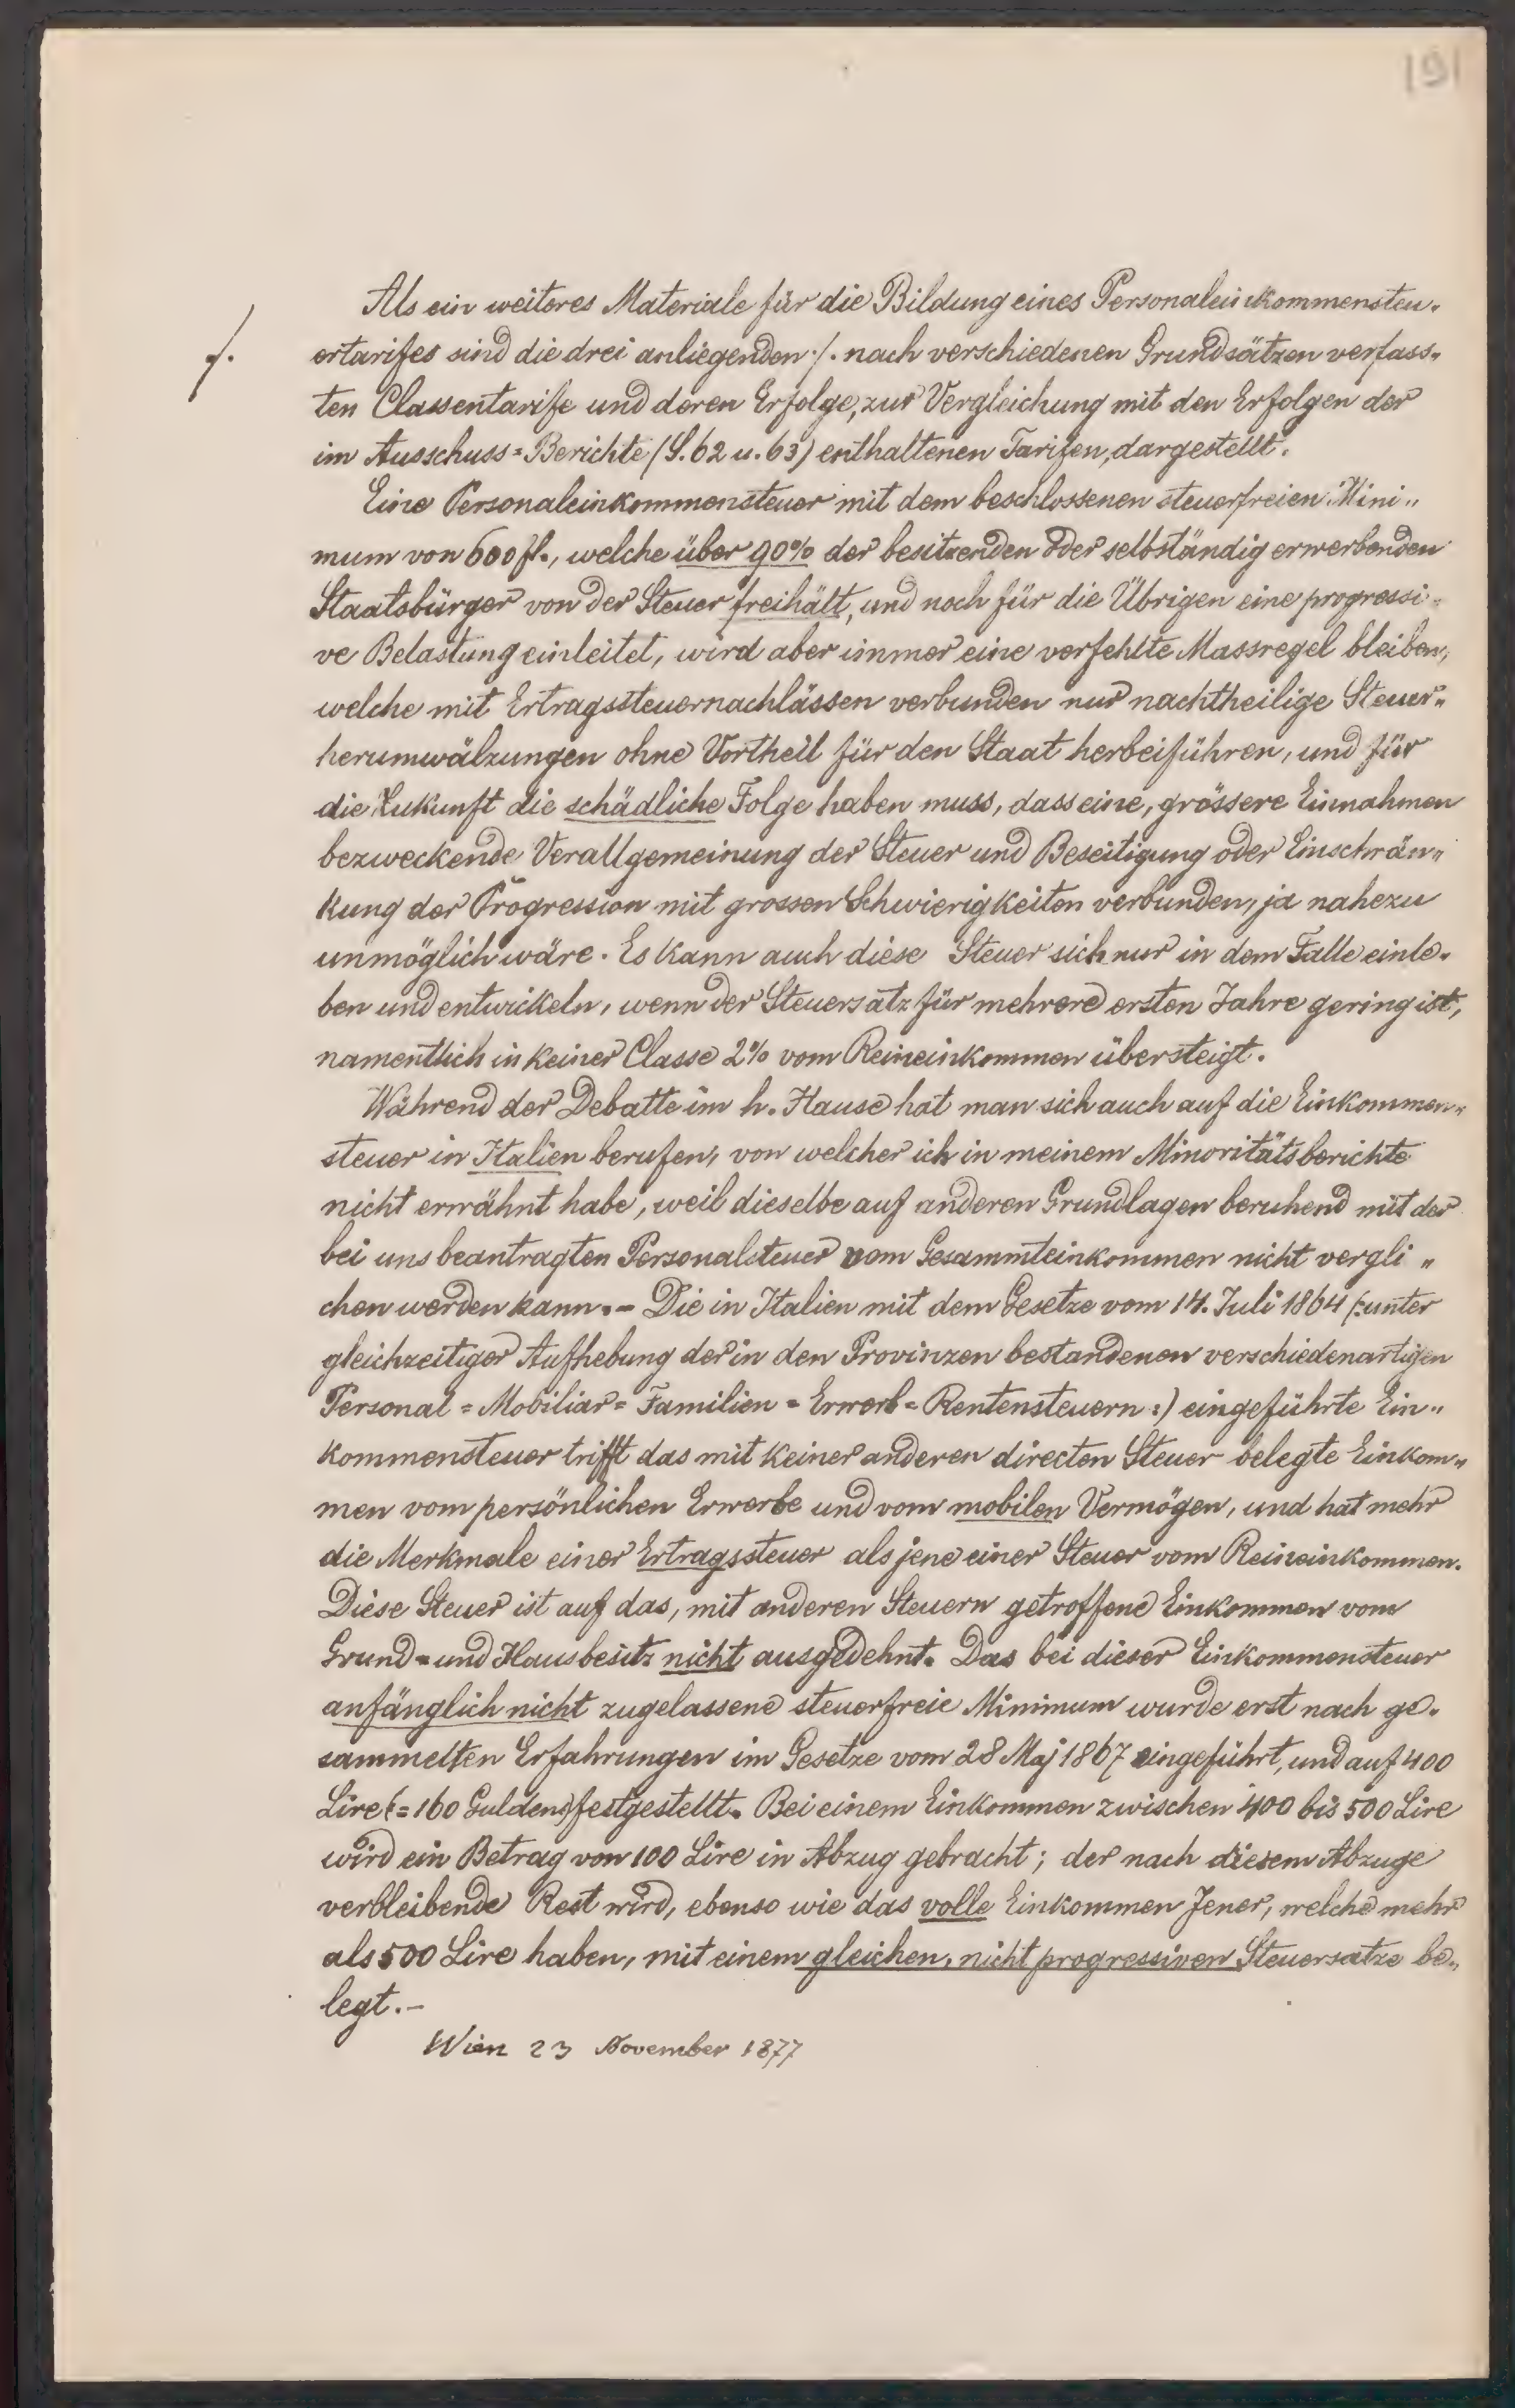 191
Als ein weiteres Materiale für die Bildung eines Personaleinkommensteu-
./. ertarifes sind die drei anliegenden ./. nach verschiedenen Grundsätzen verfass-
ten Classentarife und deren Erfolge, zur Vergleichung mit den Erfolgen der
im Ausschuss=Berichte (S. 62 u. 63) enthaltenen Tarifen, dargestellt.
Eine Personaleinkommensteuer mit dem beschlossenen steuerfreien Mini„
mum von 600 fl., welche über 90% der besitzenden oder selbständig erwerbenden
Staatsbürger von der Steuer freihält, und noch für die Übrigen eine progressi=
ve Belastung einleitet, wird aber immer eine verfehlte Massregel bleiben,
welche mit Ertragssteuernachlässen verbunden nur nachtheilige Steuer„
herumwälzungen ohne Vortheil für den Staat herbeiführen, und für
die Zukunft die schädliche Folge haben muss, dass eine, grössere Einnahmen
bezweckende Verallgemeinung der Steuer und Beseitigung oder Einschrän„
kung der Progression mit grossen Schwierigkeiten verbunden, ja nahezu
unmöglich wäre. Es kann auch diese Steuer sich nur in dem Falle einle-
ben und entwickeln, wenn der Steuersatz für mehrere ersten Jahre gering ist,
namentlich in keiner Classe 2% vom Reineinkommen übersteigt.
Während der Debatte im h. Hause hat man sich auch auf die Einkommen„
steuer in Italien berufen, von welcher ich in meinem Minoritätsberichte
nicht erwähnt habe, weil dieselbe auf anderen Grundlagen beruhend mit der
bei uns beantragten Personalsteuer vom Gesammteinkommen nicht vergli„
chen werden kann. - Die in Italien mit dem Gesetze vom 14. Juli 1864 (: unter
gleichzeitiger Aufhebung der in den Provinzen bestandenen verschiedenartigen
Personal = Mobiliar = Familien = Erwerb = Rentensteuern :) eingeführte Ein„
kommensteuer trifft das mit keiner anderen directen Steuer belegte Einkom„
men vom persönlichen Erwerbe und vom mobilen Vermögen, und hat mehr
die Merkmale einer Ertragssteuer als jene einer Steuer vom Reineinkommen.
Diese Steuer ist auf das, mit anderen Steuern getroffene Einkommen vom
Grund= und Hausbesitz nicht ausgedehnt. Das bei dieser Einkommensteuer
anfänglich nicht zugelassene steuerfreie Minimum wurde erst nach ge-
sammelten Erfahrungen im Gesetze vom 28 Maj 1867 eingeführt, und auf 400
Lire (= 160 Gulden) festgestellt. Bei einem Einkommen zwischen 400 bis 500 Lire
wird ein Betrag von 100 Lire in Abzug gebracht; der nach diesem Abzuge
verbleibende Rest wird, ebenso wie das volle Einkommen Jener, welche mehr
als 500 Lire haben, mit einem gleichen, nicht progressiven Steuersatze be„
legt. -
Wien 23 November 1877